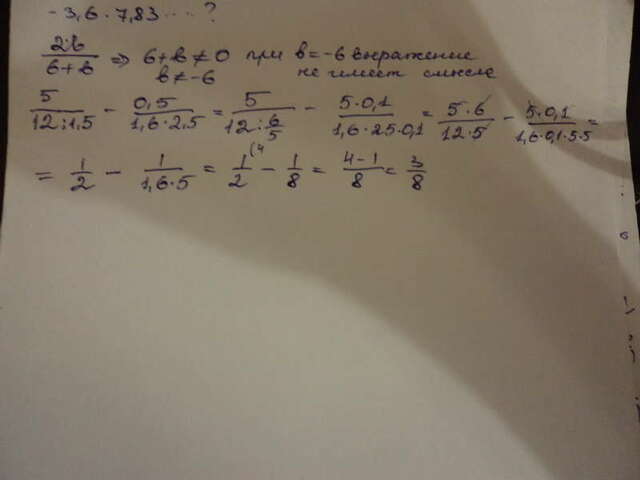 -3,6 · 7,83 ···· ?
2b/(6+b) => 6+b≠0 при b=-6 выражение
b≠-6 не имеет смысла
5/(12:1,5) - 0,5/(1,6·2,5) = 5/(12:6/5) - 5·0,1/(1,6·25·0,1) = 5·6/(12·5) - 5·0,1/(1,6·0,1·5·5) =
= 1/2 - 1/(1,6·5) = 1(4/2 - 1/8 = (4-1)/8 = 3/8